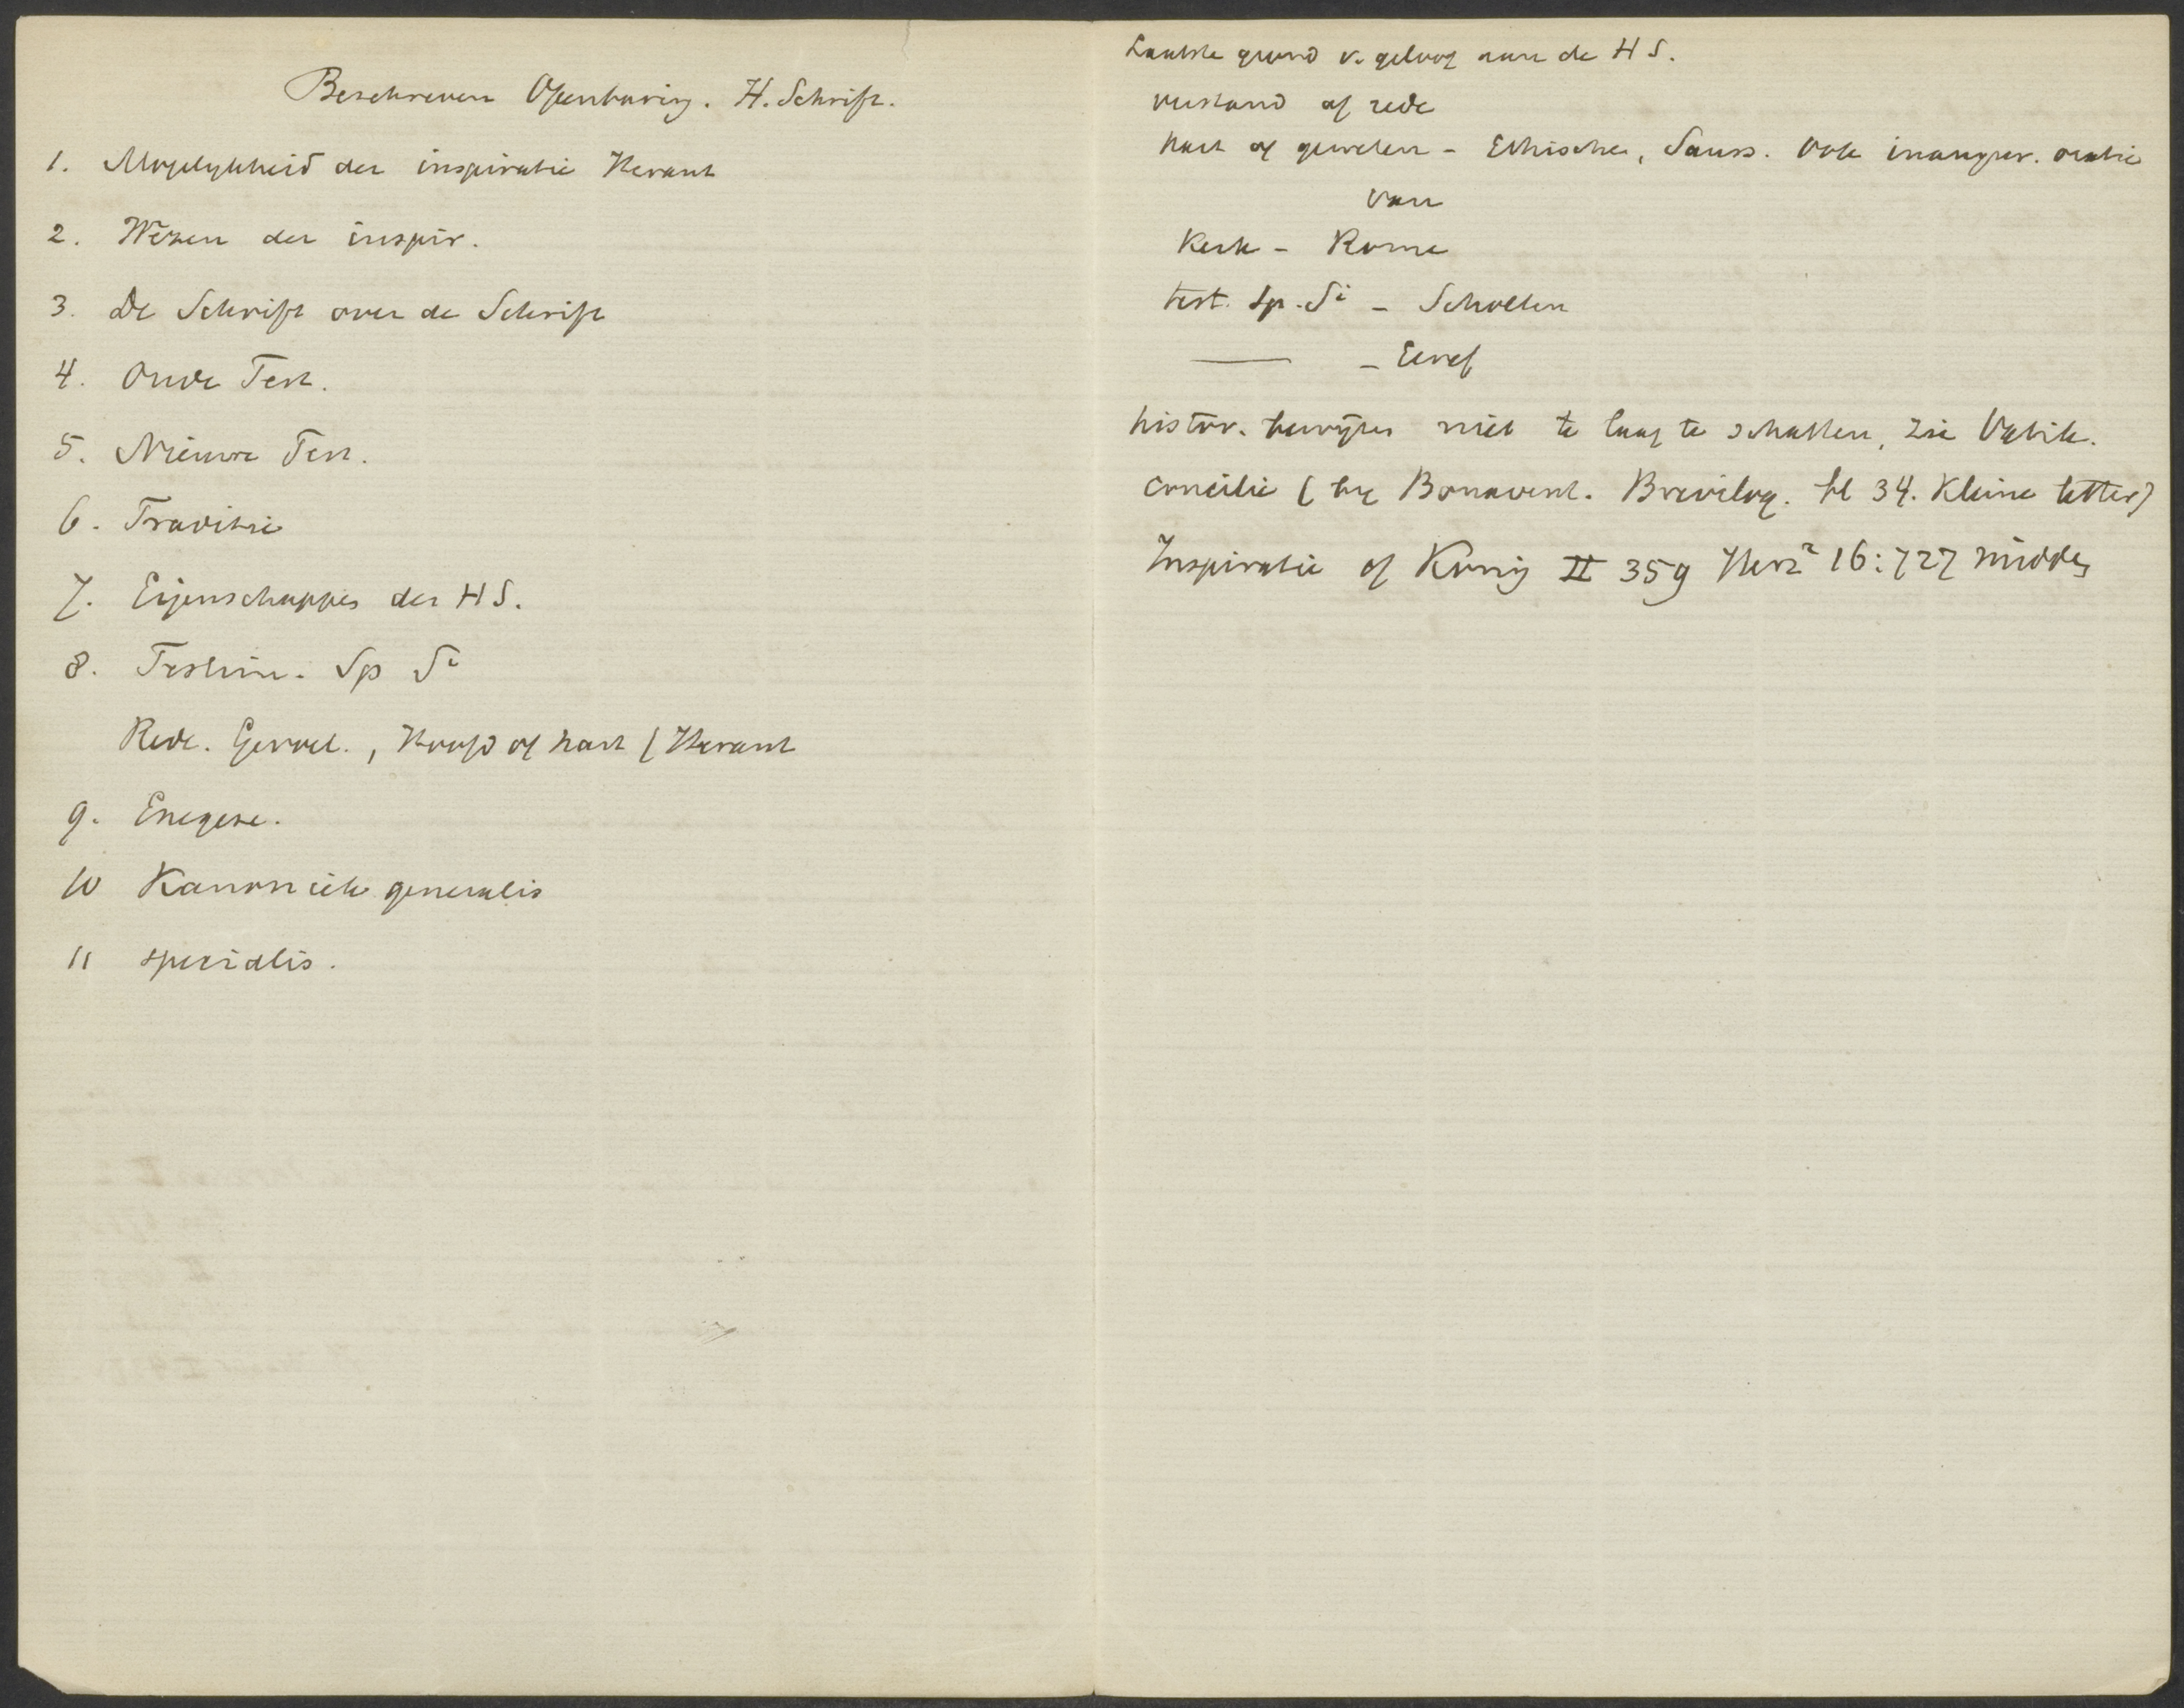 Beschreven Openbaring. H. Schrift.
1. Mogelykheid der inspiratie Heraut
2. Wezen der inspir.
3. De Schrift over de Schrift
4. Oude Test.
5. Nieuwe Test.
6. Traditie
7. Eigenschappen der HS.
8. Testim. Sp Si
Rede. Gevoel., Hoofd of hart ( Heraut
9. Exegese.
10 Kanoniek generalis
11 specialis.
Laatste grond v. geloof aan de HS.
verstand of rede
hart of geweten - Ethische, Sauss. Ook inaugur. oratie
van
Kerk - Rome
test. Sp. Si - Scholten
— - Geref
histor. bewyzen niet te laag te schatten, zie Vatik.
concilie ( by Bonavent. Breviloq. bl 34. Kleine letter)
Inspiratie of König II 359 Herz² 16:727 midden